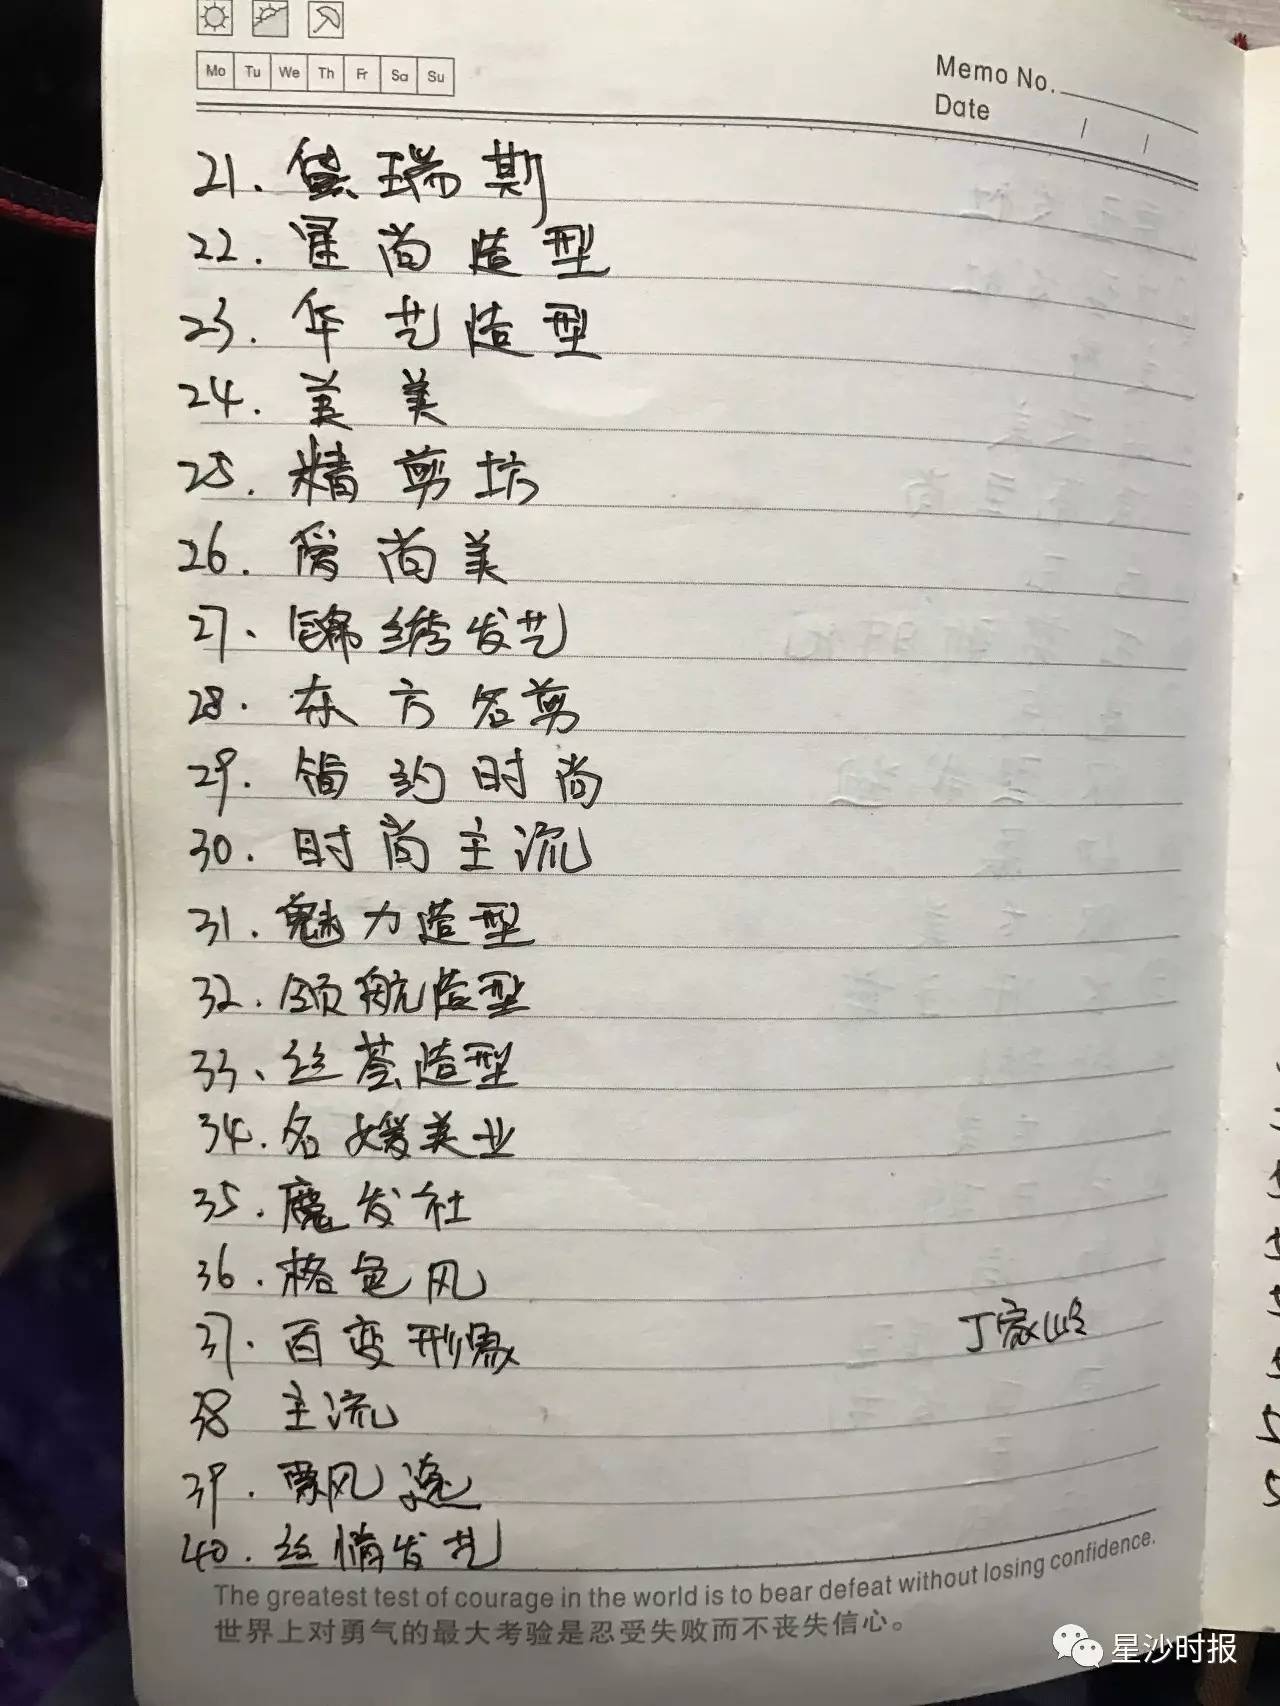 Mo Tu We Th Fr Sa Su
Memo No.
Date / /
21. 黛瑞斯
22. 星尚造型
23. 华艺造型
24. 美美
25. 精剪坊
26. 尚美
27、锦绣发艺
28. 东方名剪
29. 简约时尚
30. 时尚主流
31. 魅力造型
32. 领航造型
33、丝荟造型
34. 名媛美业
35. 魔发社
36. 格色风
37. 百变形象
丁家
38 主流
39. 风逸
40. 丝情发艺
The greatest test of courage in the world is to bear defeat without losing confidence.
世界上对勇气的最大考验是忍受失败而不丧失信心。
星沙时报